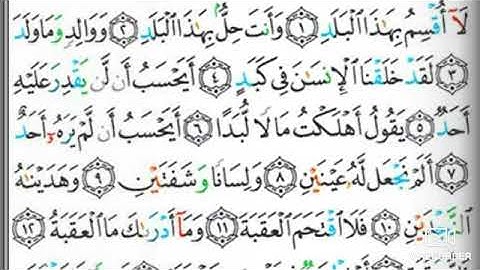 لَآ أُقْسِمُ بِهَٰذَا الْبَلَدِ ۝١ وَأَنتَ حِلٌّۢ بِهَٰذَا الْبَلَدِ ۝٢ وَوَالِدٍ وَمَا وَلَدَ
۝٣ لَقَدْ خَلَقْنَا الْإِنسَٰنَ فِى كَبَدٍ ۝٤ أَيَحْسَبُ أَن لَّن يَقْدِرَ عَلَيْهِ
أَحَدٌ ۝٥ يَقُولُ أَهْلَكْتُ مَالًا لُّبَدًا ۝٦ أَيَحْسَبُ أَن لَّمْ يَرَهُۥٓ أَحَدٌ
۝٧ أَلَمْ نَجْعَل لَّهُۥ عَيْنَيْنِ ۝٨ وَلِسَانًا وَشَفَتَيْنِ ۝٩ وَهَدَيْنَٰهُ
النَّجْدَيْنِ ۝١٠ فَلَا اقْتَحَمَ الْعَقَبَةَ ۝١١ وَمَآ أَدْرَىٰكَ مَا الْعَقَبَةُ ۝١٢